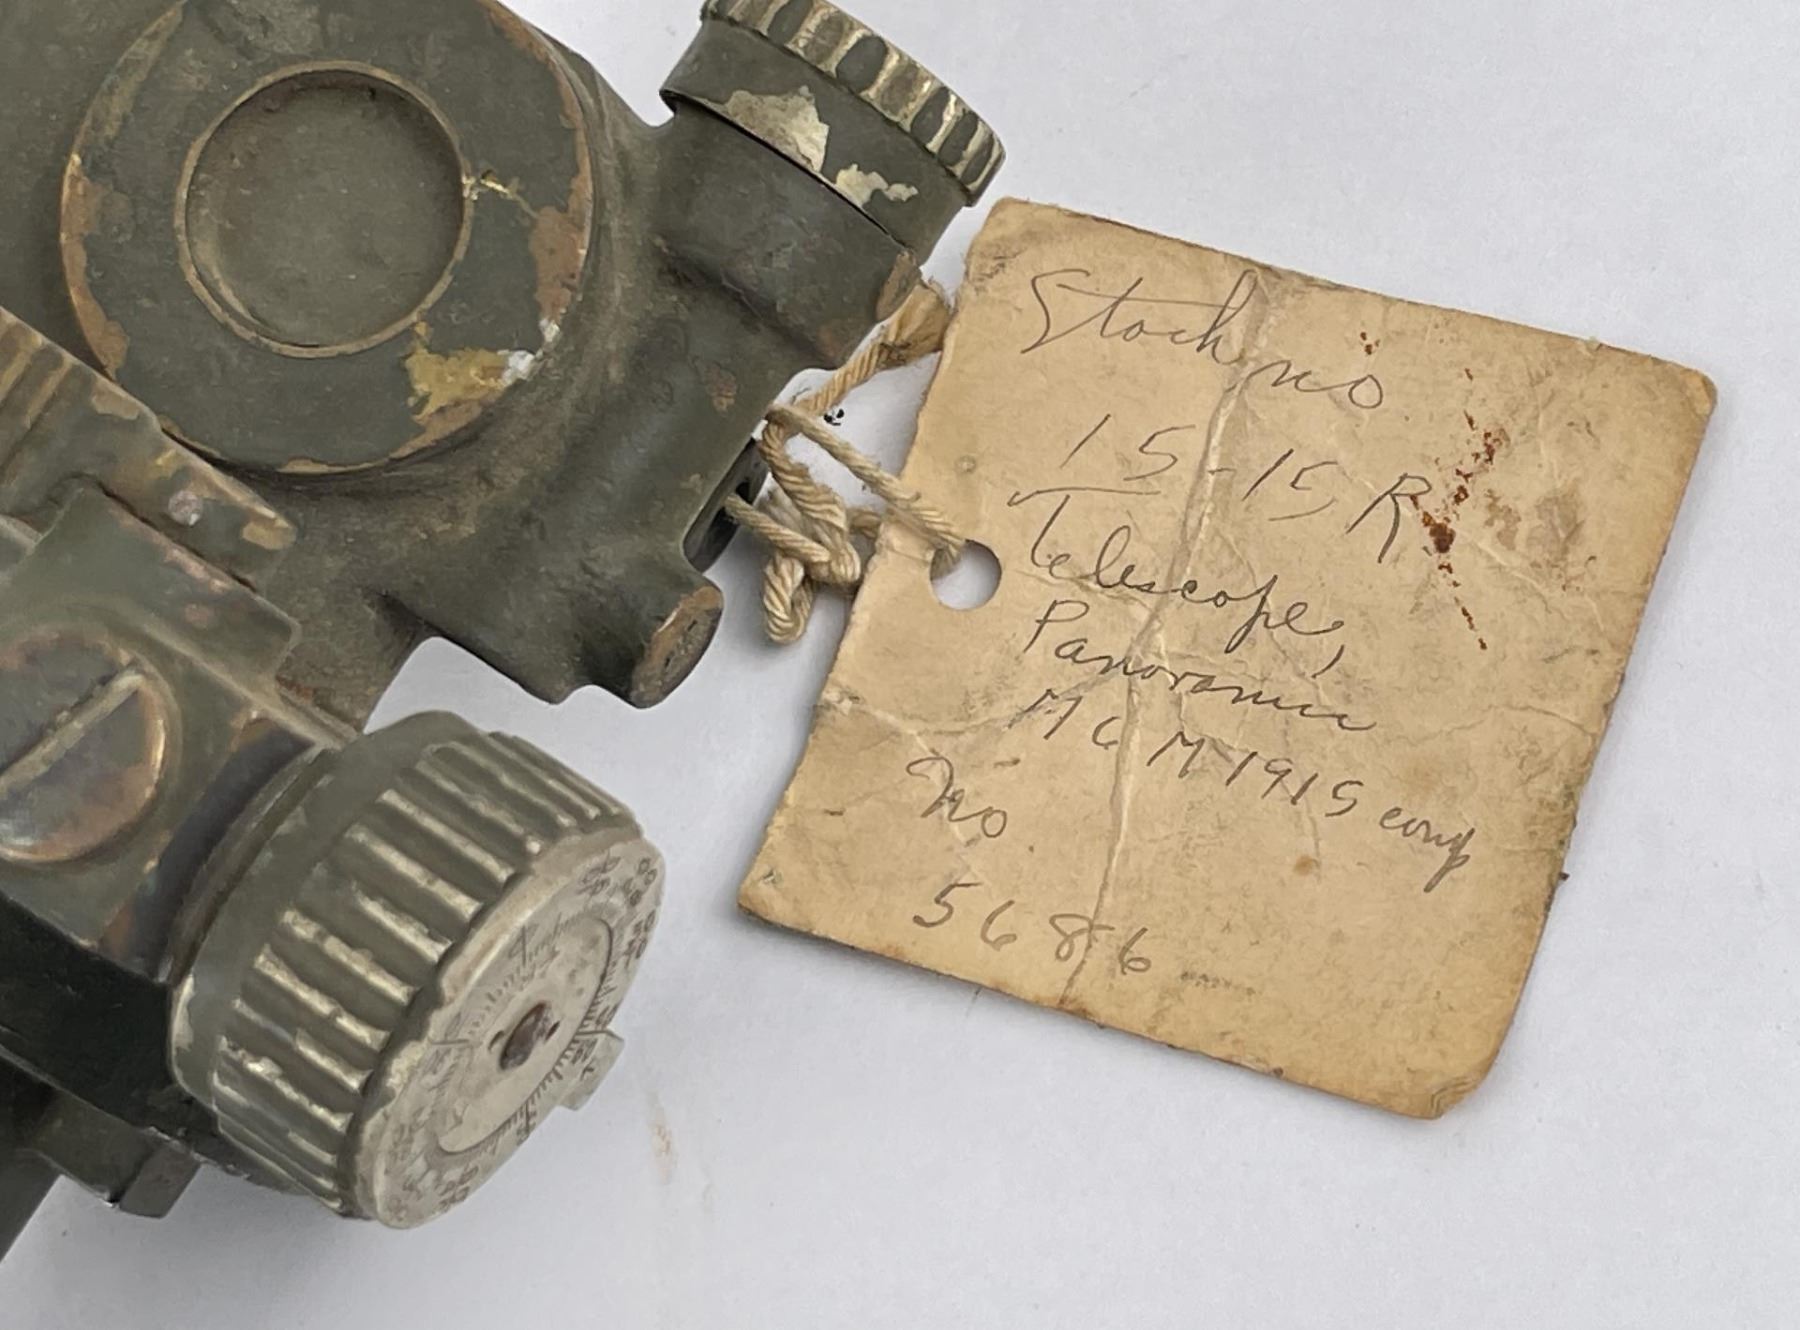 Stock no
15-15 R
Telescope,
Panoramic
M6 M-1915
No
5686